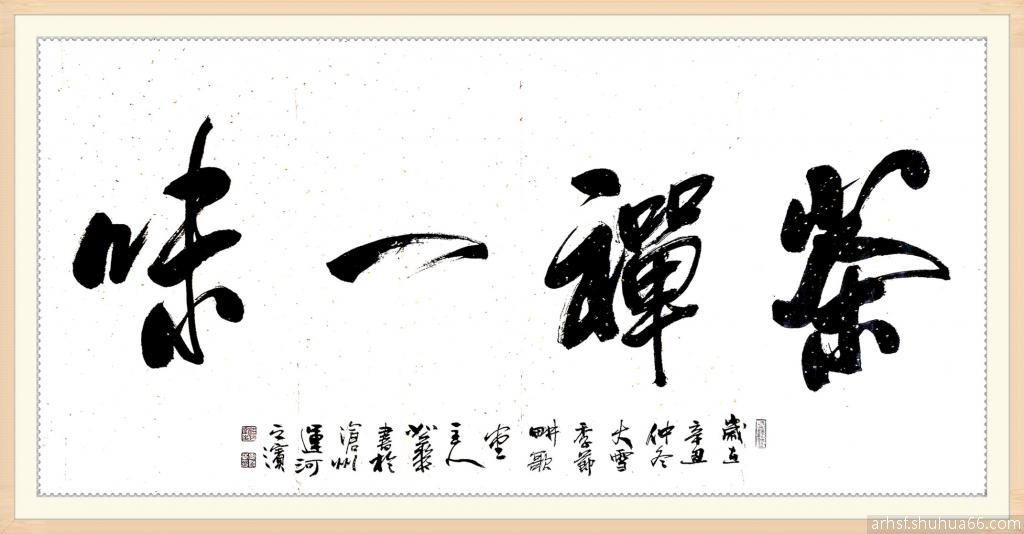 茶禪一味
歲在
辛丑
仲冬
大雪
季節
畊歌
堂
主人
書於
滄州
運河
之濱
arhsf.shuhua66.com